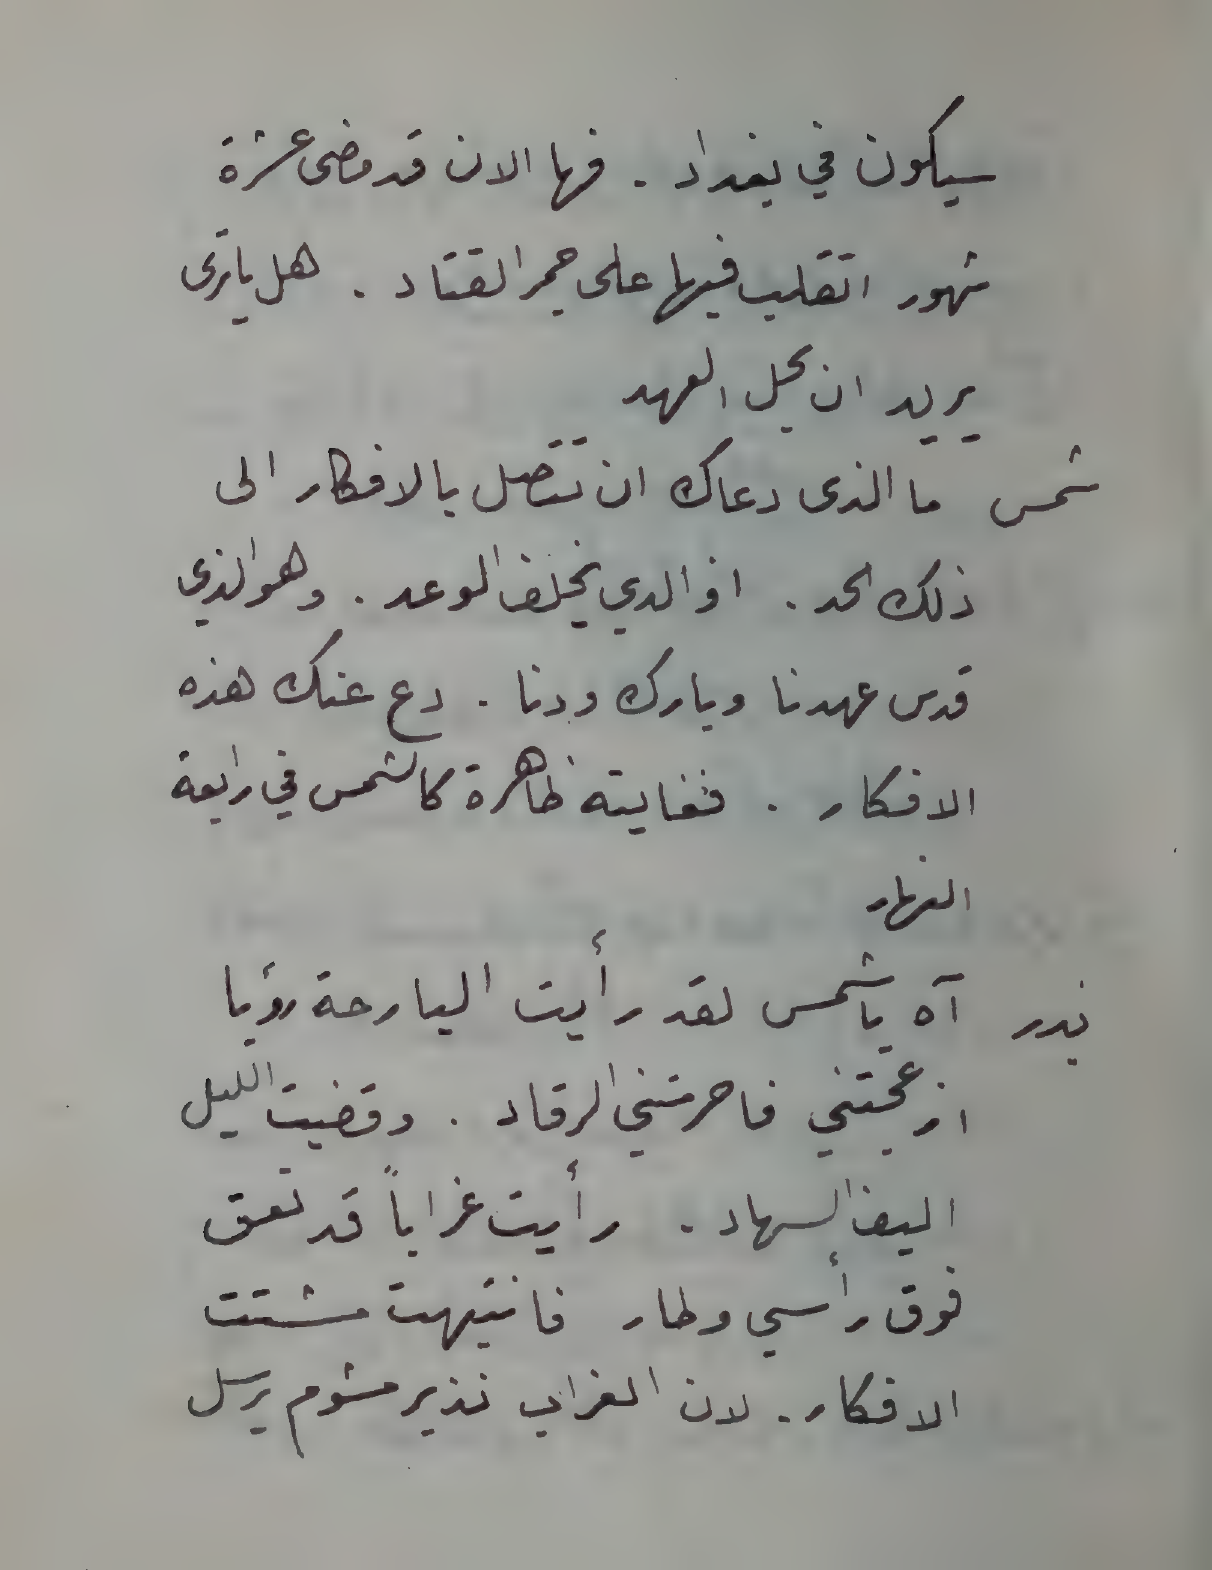 سيكون في بغداد . فها الان قد مضى عشرة
شهور اتقلب فيها على جمر القتاد . هل يا ترى
يريد ان يحل العهد
شمس ما الذى دعاك ان تتصل بالافكار الى
ذلك الحد . افوالدي يخلف الوعد . وهو الذي
قدس عهدنا وبارك ودنا . دع عنك هذه
الافكار . فغايته ظاهرة كالشمس في رابعة
النهار
بدر آه يا شمس لقد رأيت البارحة رؤيا
ازعجتني فاحرمتني الرقاد . وقضيت الليل
اليف السهاد . رأيت غراباً قد نعق
فوق رأسي وطار فانتبهت مشتت
الافكار . لان الغراب نذير مشوم يرسل